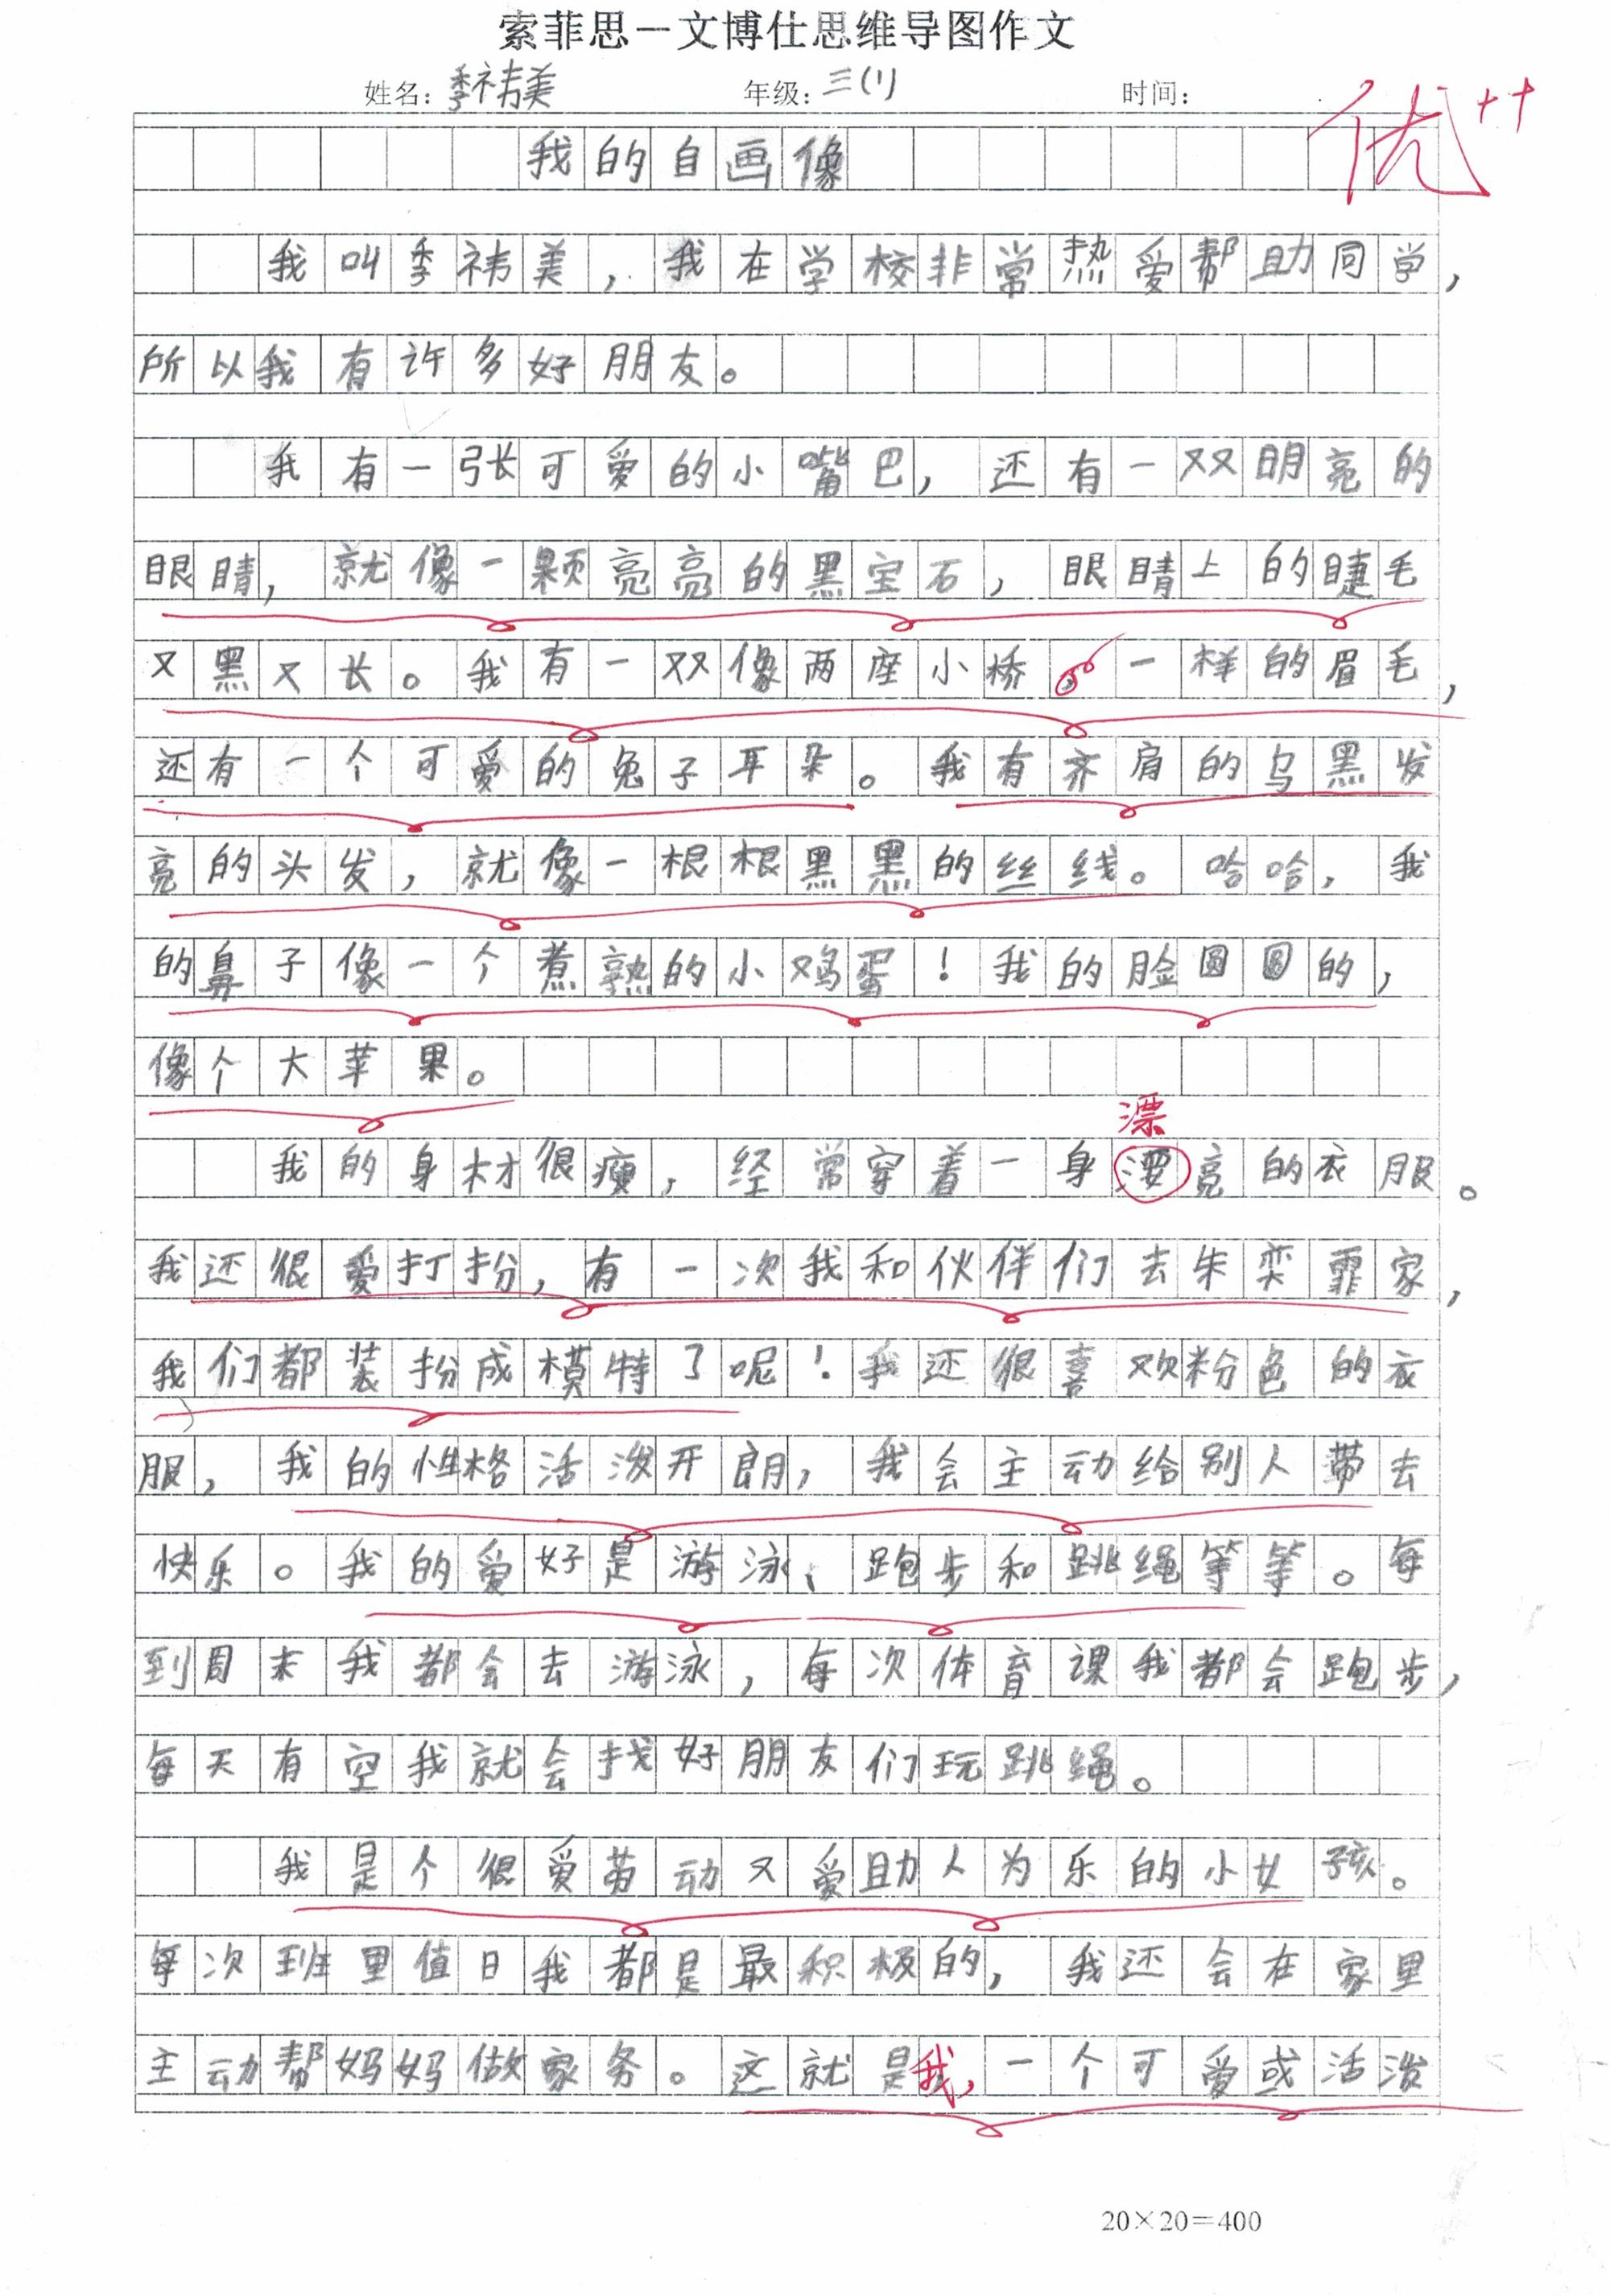 索菲思一文博仕思维导图作文
姓名：季祎美 年级：三(1) 时间：
优++
我的自画像
我叫季祎美，我在学校非常热爱帮助同学，
所以我有许多好朋友。
我有一张可爱的小嘴巴，还有一双明亮的
眼睛，就像一颗亮亮的黑宝石，眼睛上的睫毛
又黑又长。我有一双像两座小桥，一样的眉毛，
还有一个可爱的兔子耳朵。我有齐肩的乌黑发
亮的头发，就像一根根黑黑的丝线。哈哈，我
的鼻子像一个煮熟的小鸡蛋！我的脸圆圆的，
像个大苹果。
漂
我的身材很瘦，经常穿着一身亮的衣服。
我还很爱打扮，有一次我和伙伴们去朱奕霏家，
我们都装扮成模特了呢！我还很喜欢粉色的衣
服，我的性格活泼开朗，我会主动给别人带去
快乐。我的爱好是游泳、跑步和跳绳等等。每
到周末我都会去游泳，每次体育课我都会跑步，
每天有空我就会找好朋友们玩跳绳。
我是个很爱劳动又爱助人为乐的小女孩。
每次班里值日我都是最积极的，我还会在家里
主动帮妈妈做家务。这就是我，一个可爱或活泼
20×20=400